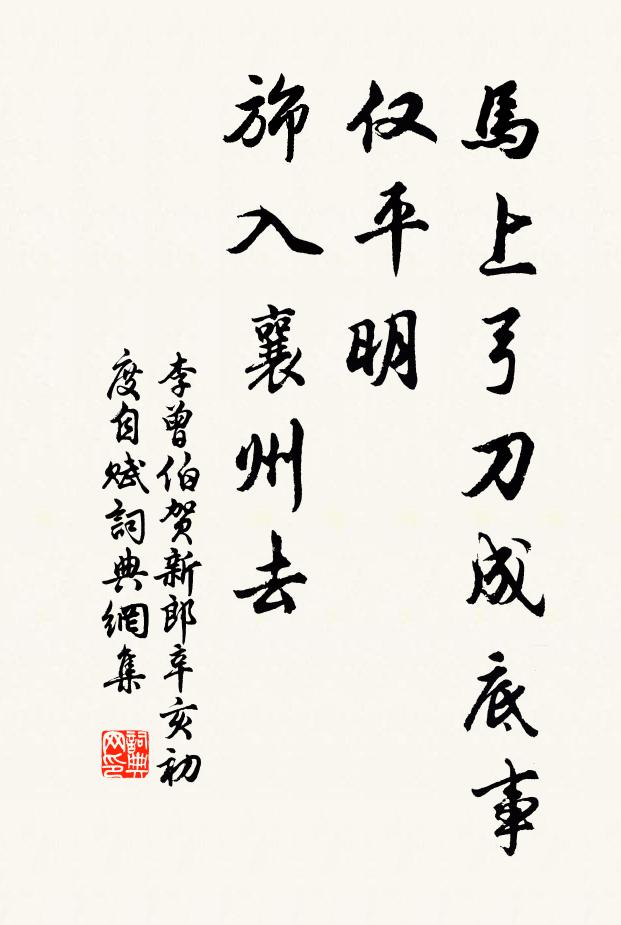 馬上弓刀成底事
仅平明
斾入襄州去
李曾伯賀新郎辛亥初
度自赋詞典網集
詞典
网印